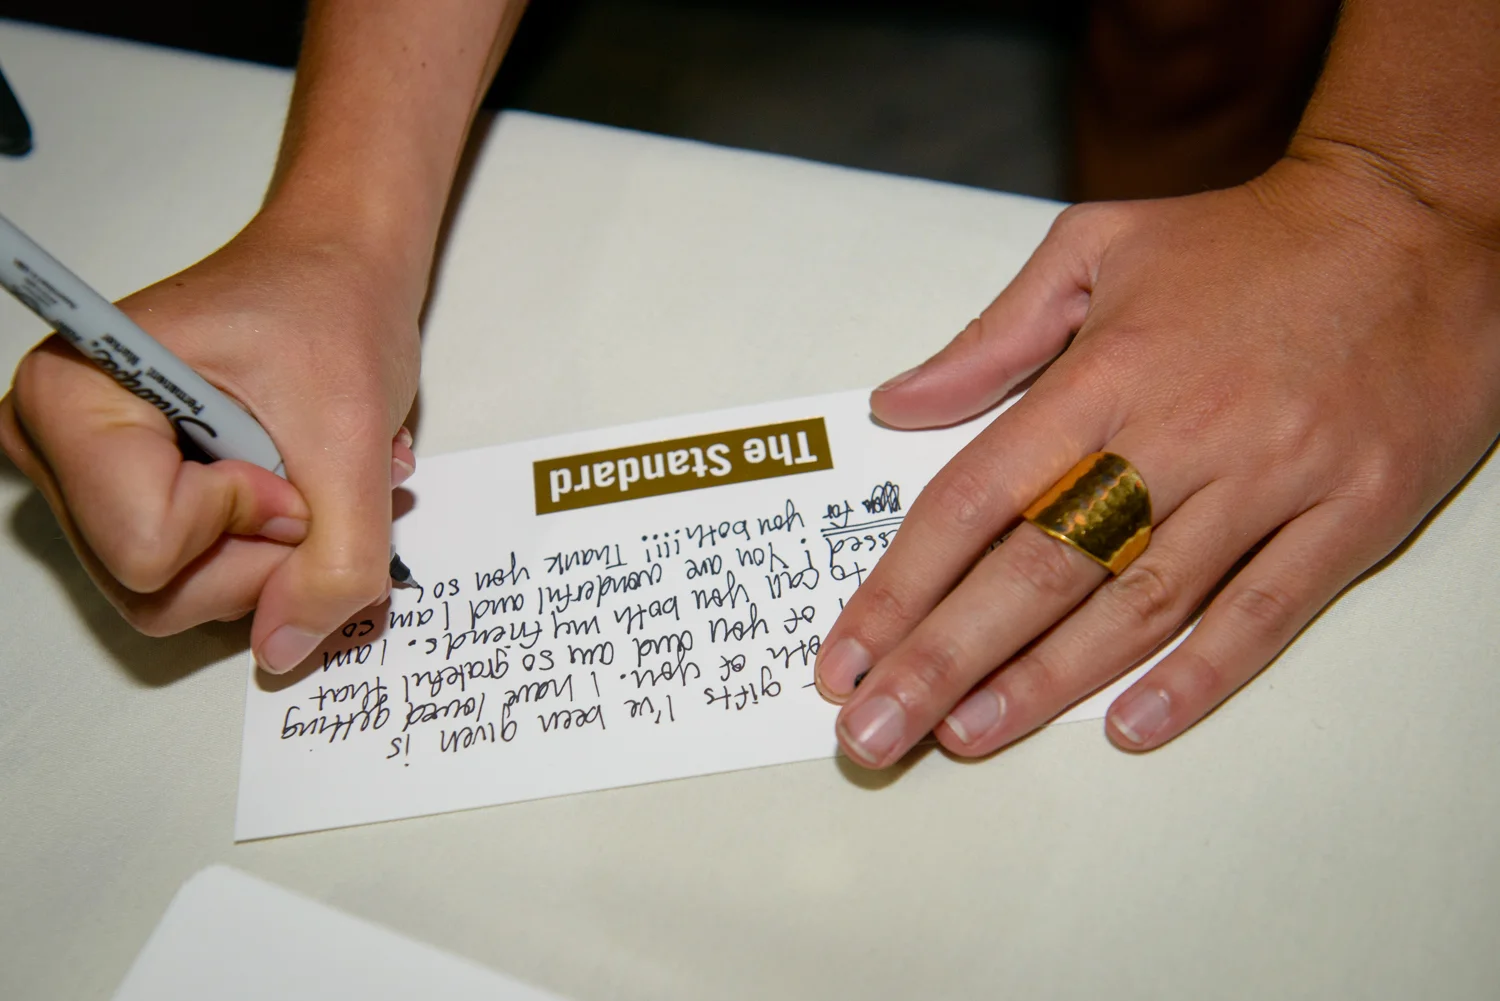 gifts I've been given is
of you. I have loved getting
of you and am so grateful that
to call you both my friends. I am
! You are wonderful and I am so
for you both!!!! Thank you so
The Standard
Sharpie
Permanent
Marker